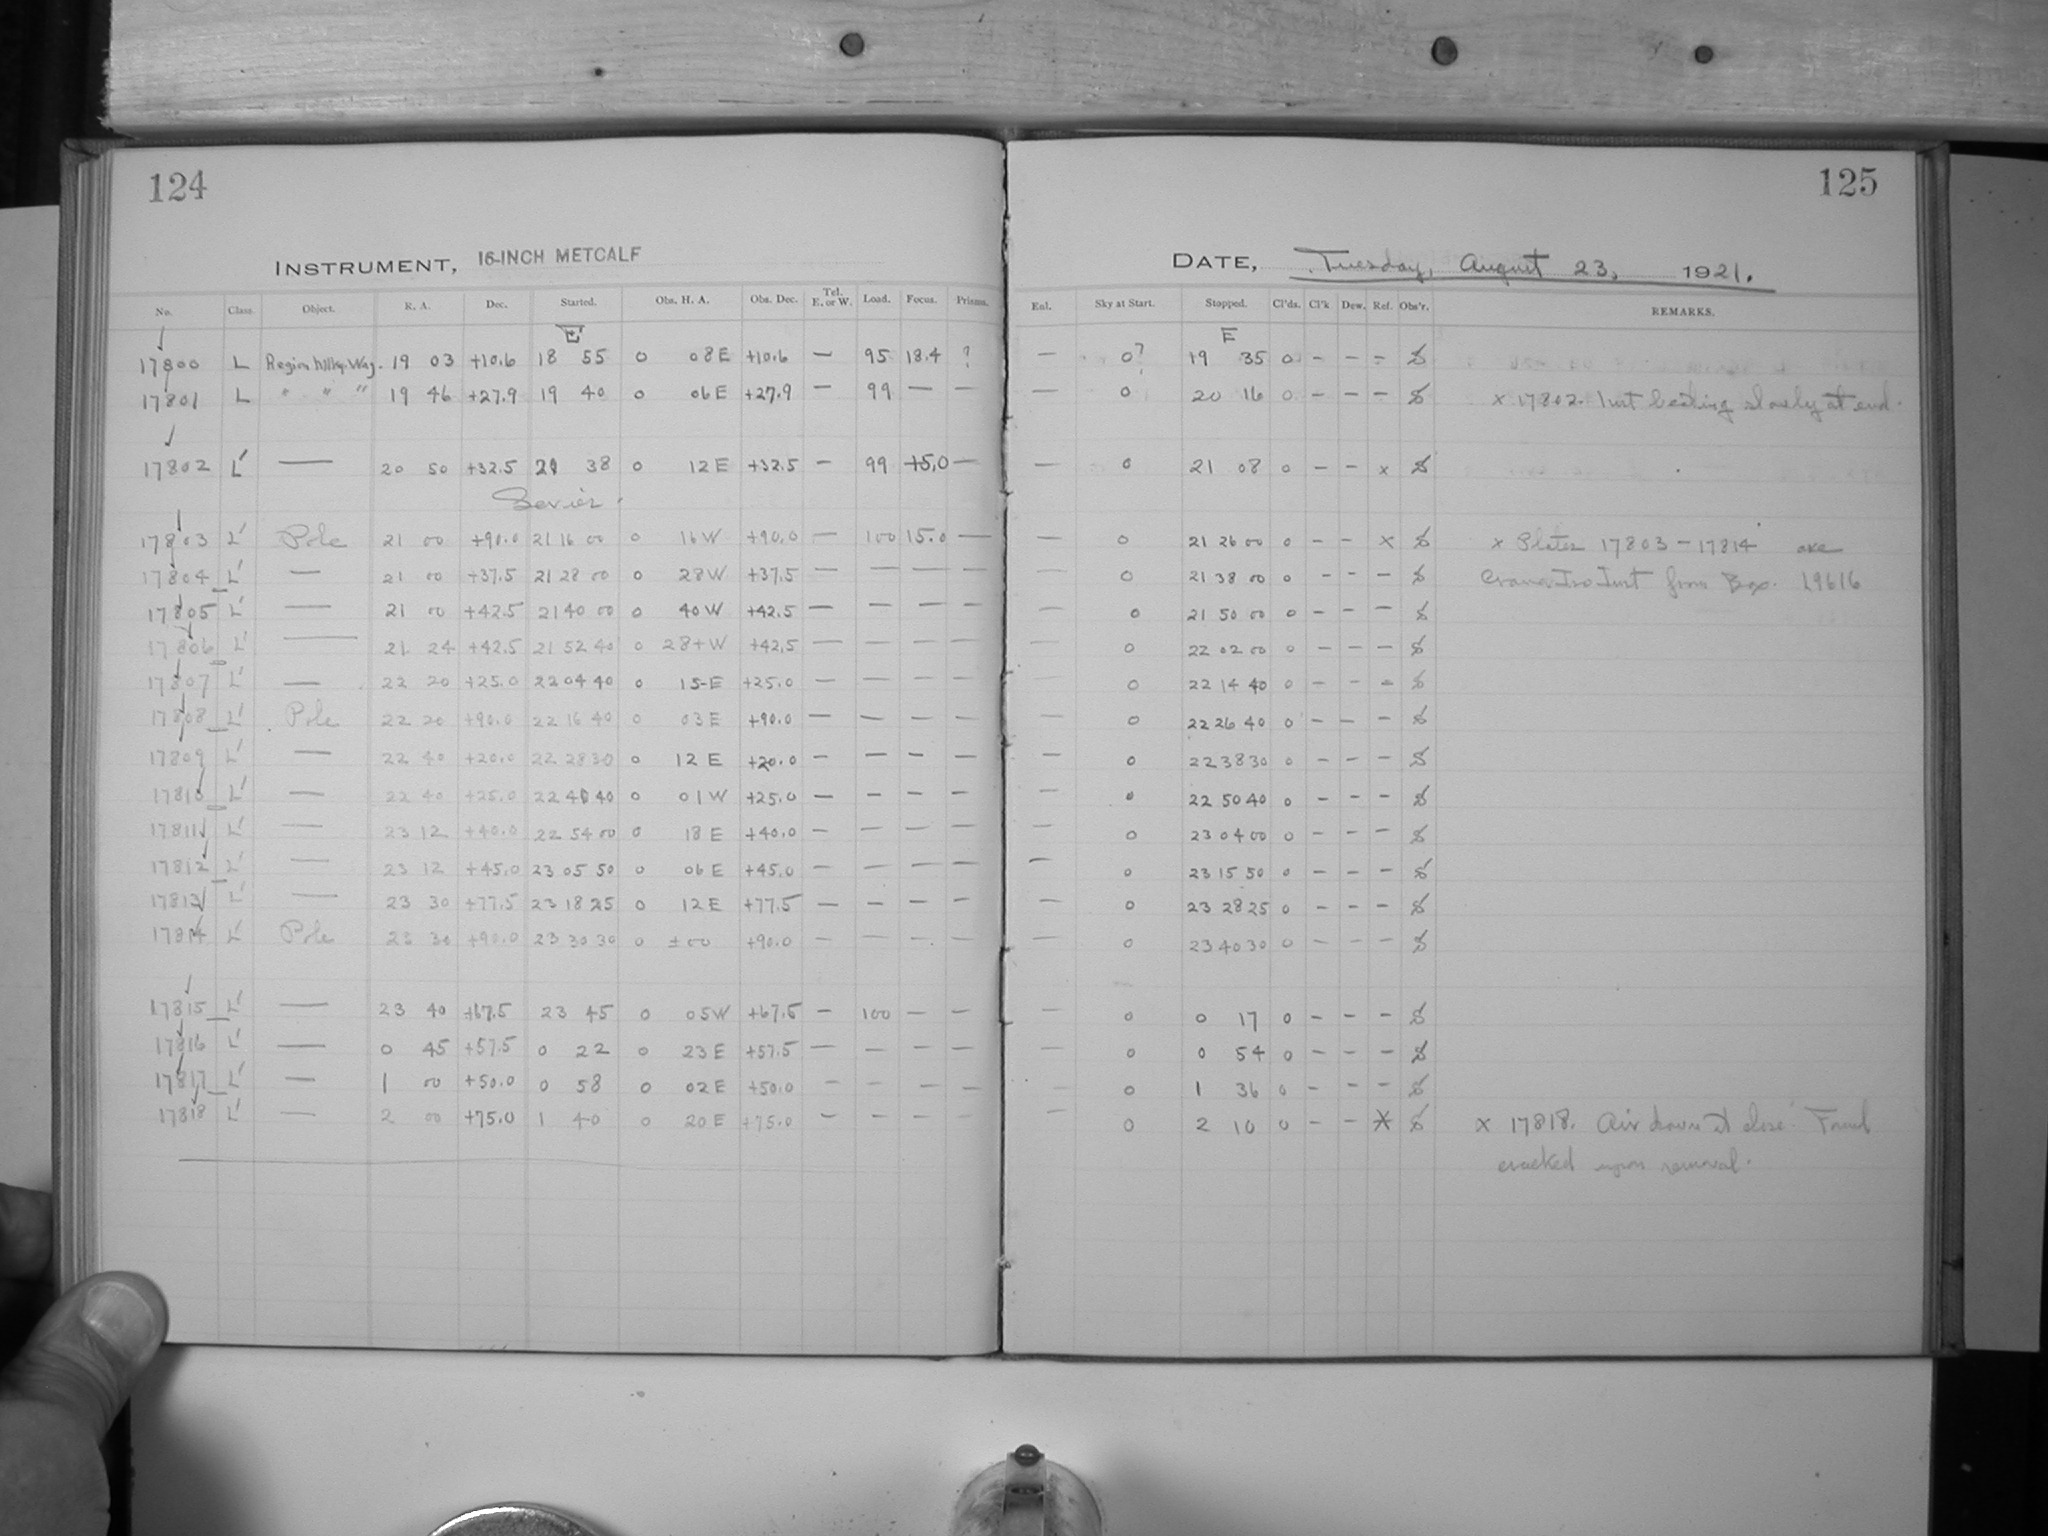 124
INSTRUMENT, 16-INCH METCALF
No. Class. Object. R. A. Dec. Started. Obs. H. A. Obs. Dec. Tel. E. or W. Load. Focus. Prisms.
E
17800 L Region Milky Way. 19 03 +10.6 18 55 0 08 E +10.6 — 95 18.4 ?
17801 L " " " 19 46 +27.9 19 40 0 06 E +27.9 — 99 — —
17802 L' — 20 50 +32.5 38 0 12 E +32.5 — 99 +5.0 —
17803 L' Pole 21 00 +90.0 21 16 00 0 16 W +90.0 — 100 15.0 —
17804 L' — 21 00 +37.5 21 28 00 0 28 W +37.5 — — — —
17805 L' — 21 00 +42.5 21 40 00 0 40 W +42.5 — — — —
17806 L' — 21 24 +42.5 21 52 40 0 28+W +42.5 — — — —
17807 L' — 22 20 +25.0 22 04 40 0 15-E +25.0 — — — —
17808 L' Pole 22 20 +90.0 22 16 40 0 03 E +90.0 — — — —
17809 L' — 22 40 +20.0 22 28 30 0 12 E +20.0 — — — —
17810 L' — 22 40 +25.0 22 40 40 0 01 W +25.0 — — — —
17811 L' — 23 12 +40.0 22 54 00 0 18 E +40.0 — — — —
17812 L' — 23 12 +45.0 23 05 50 0 06 E +45.0 — — — —
17813 L' — 23 30 +77.5 23 18 25 0 12 E +77.5 — — — —
17814 L' Pole 23 30 +90.0 23 30 30 0 ±00 +90.0 — — — —
17815 L' — 23 40 +67.5 23 45 0 05 W +67.5 — 100 — —
17816 L' — 0 45 +57.5 0 22 0 23 E +57.5 — — — —
17817 L' — 1 00 +50.0 0 58 0 02 E +50.0 — — — —
17818 L' — 2 00 +75.0 1 40 0 20 E +75.0 — — — —
125
DATE, Tuesday, August 23, 1921.
Enl. Sky at Start. Stopped. Cl'ds. Cl'k Dew. Ref. Obs'r. REMARKS.
E
— 0? 19 35 0 — — — S
— 0 20 16 0 — — — S x 17802. Inst beating slowly at end.
— 0 21 08 0 — — x S
— 0 21 26 00 0 — — x S x Plates 17803 – 17814 are
— 0 21 38 00 0 — — — S Cramer Iso Inst from Box. 19616
— 0 21 50 00 0 — — — S
— 0 22 02 00 0 — — — S
— 0 22 14 40 0 — — — S
— 0 22 26 40 0 — — — S
— 0 22 38 30 0 — — — S
— 0 22 50 40 0 — — — S
— 0 23 04 00 0 — — — S
— 0 23 15 50 0 — — — S
— 0 23 28 25 0 — — — S
— 0 23 40 30 0 — — — S
— 0 0 17 0 — — — S
— 0 0 54 0 — — — S
— 0 1 36 0 — — — S
— 0 2 10 0 — — x S x 17818. Air down at close. Found
cracked upon removal.